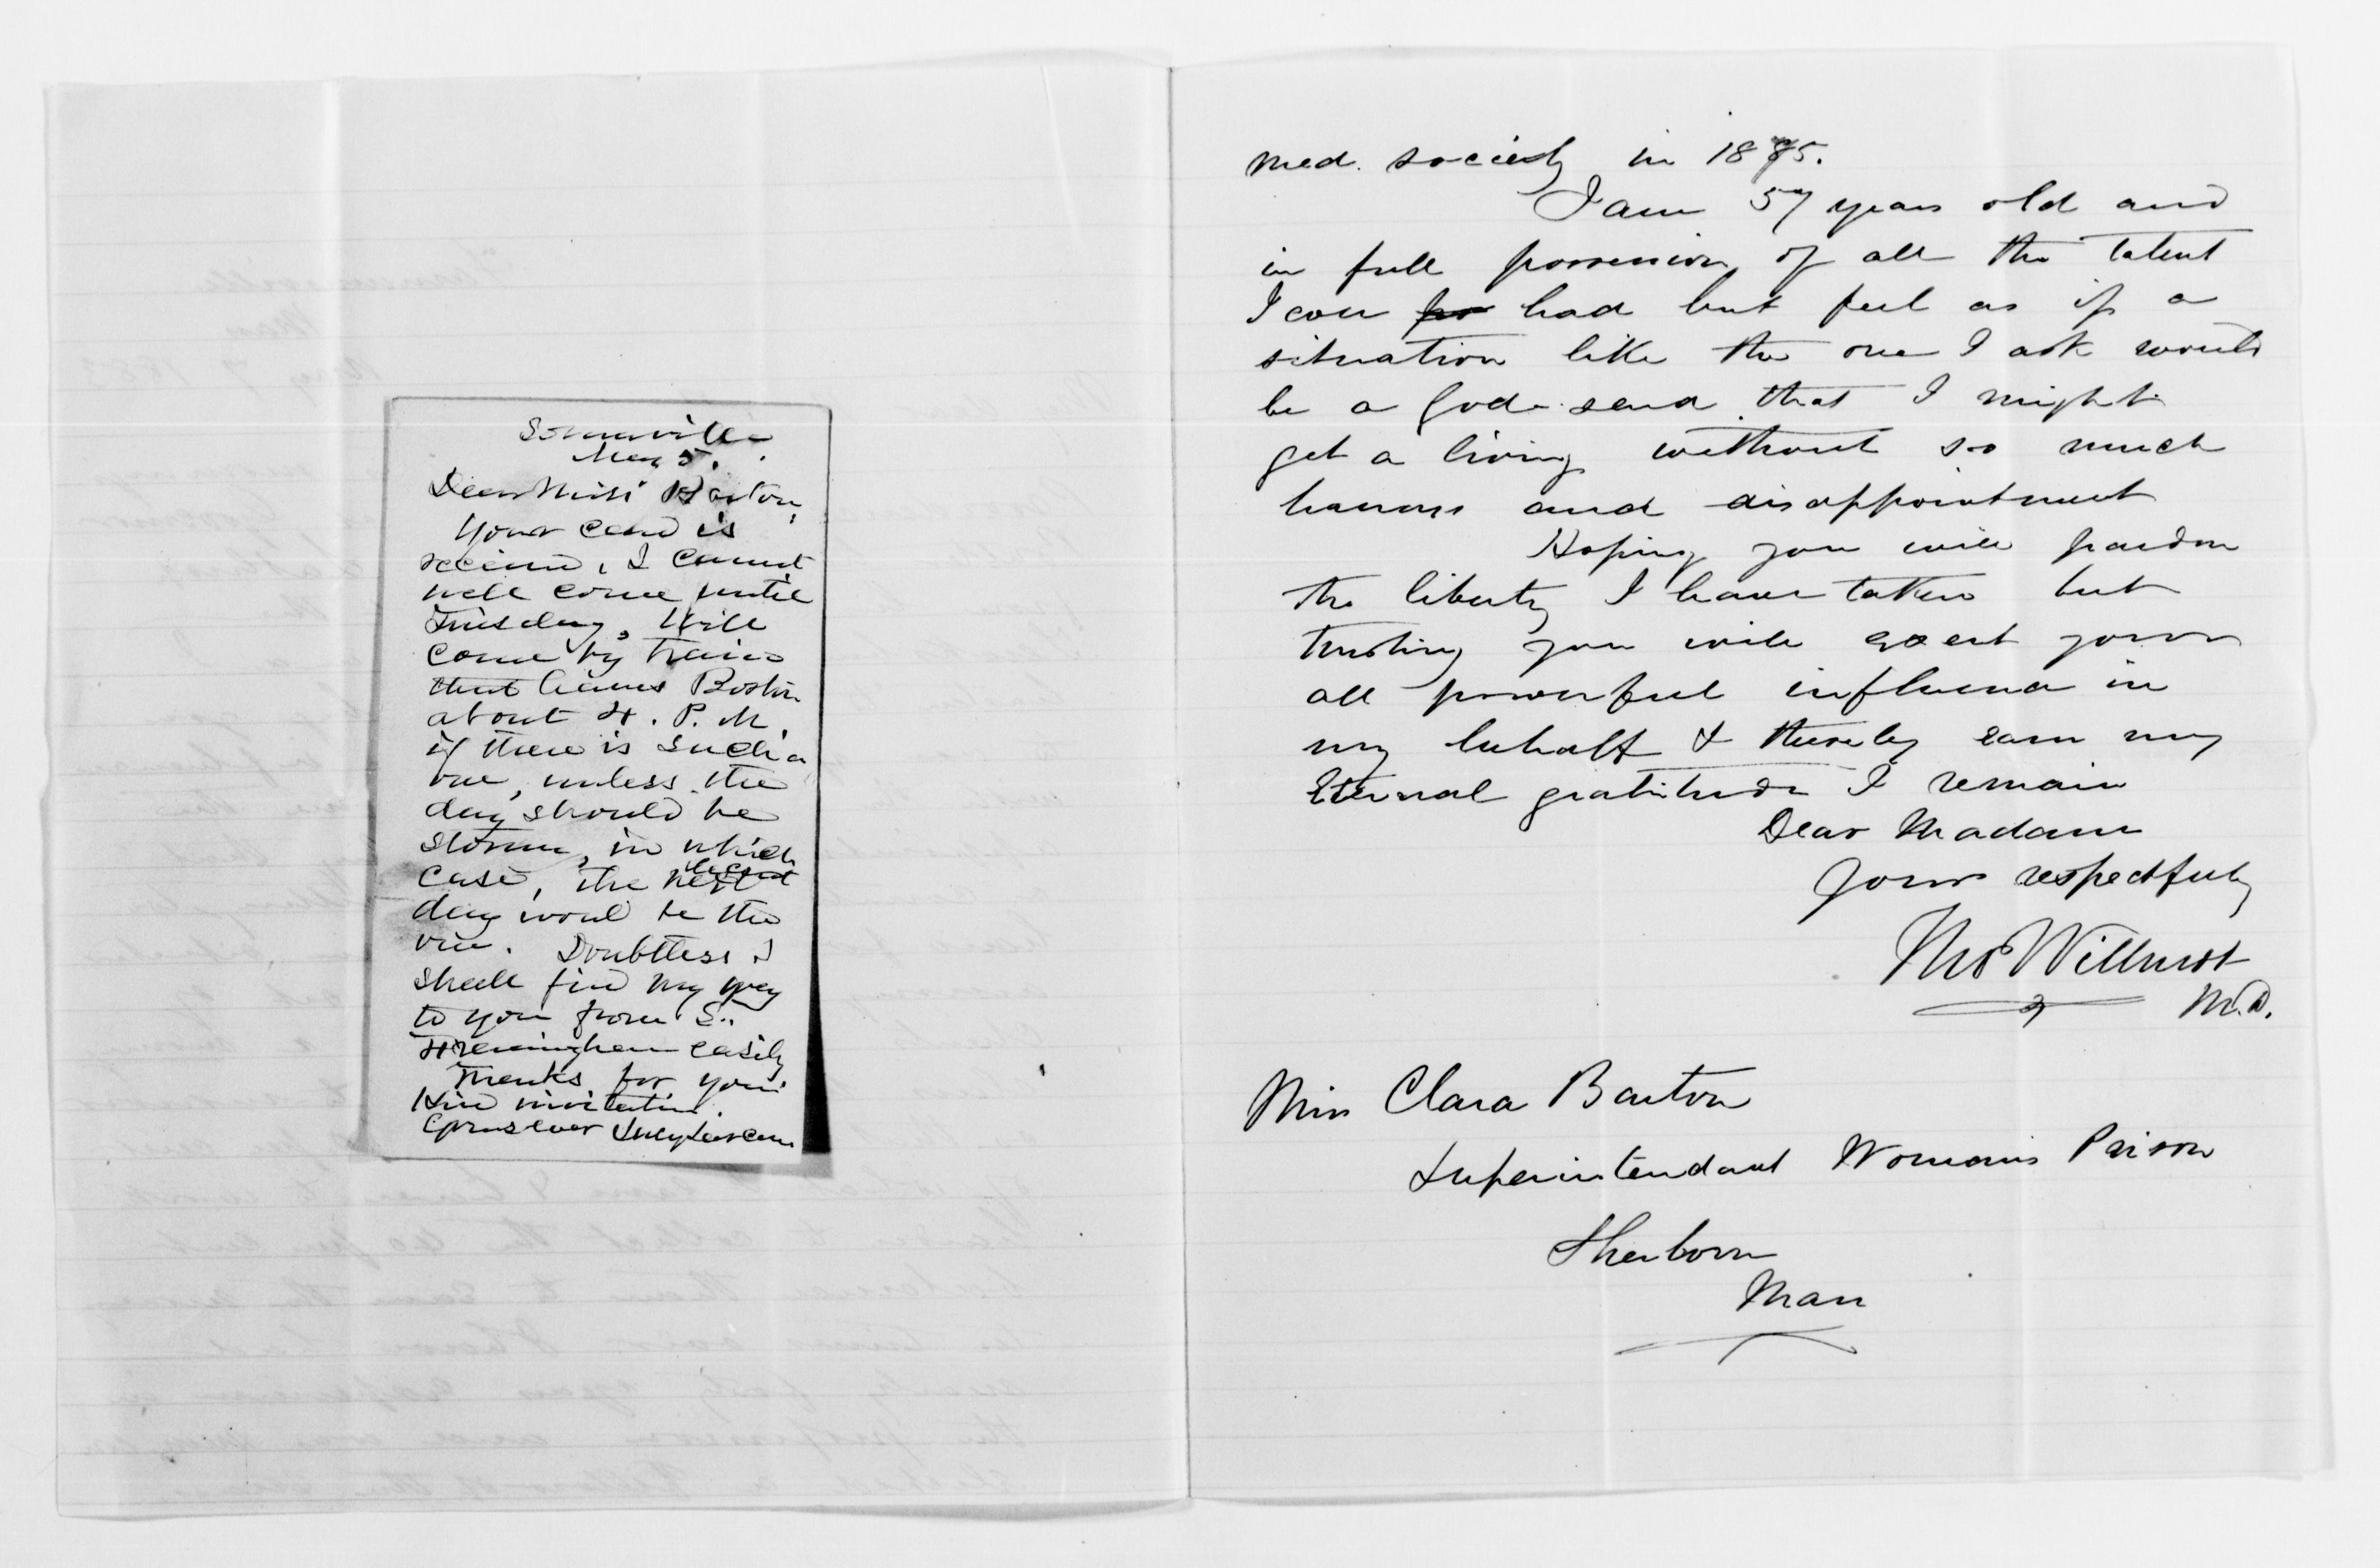 Somerville
May 5.
Dear Miss Barton,
Your card is
received, I cannot
well come until
Tuesday, Will
come by train
that leaves Boston
about 4. P. M.
if there is such a
one, unless the
day should be
stormy, in which
case, the next
day woul be the
one. Doubtless I
shall find my way
to you from S.
Framingham easily
Thanks for your
kind invitation.
Yours ever Lucy Larcom
med. society in 1875.
I am 57 years old and
in full possession of all the talent
I ever had but feel as if a
situation like the one I ask would
be a God-send that I might
get a living without so much
and disappointment
Hoping you will pardon
the liberty I have taken but
trusting you will exert your
all powerful influence in
my behalf & thereby earn my
Eternal gratitude I remain
Dear Madam
Yours respectfuly
M.D.
Miss Clara Barton
Superintendant Womans Prison
Sherborn
Mass